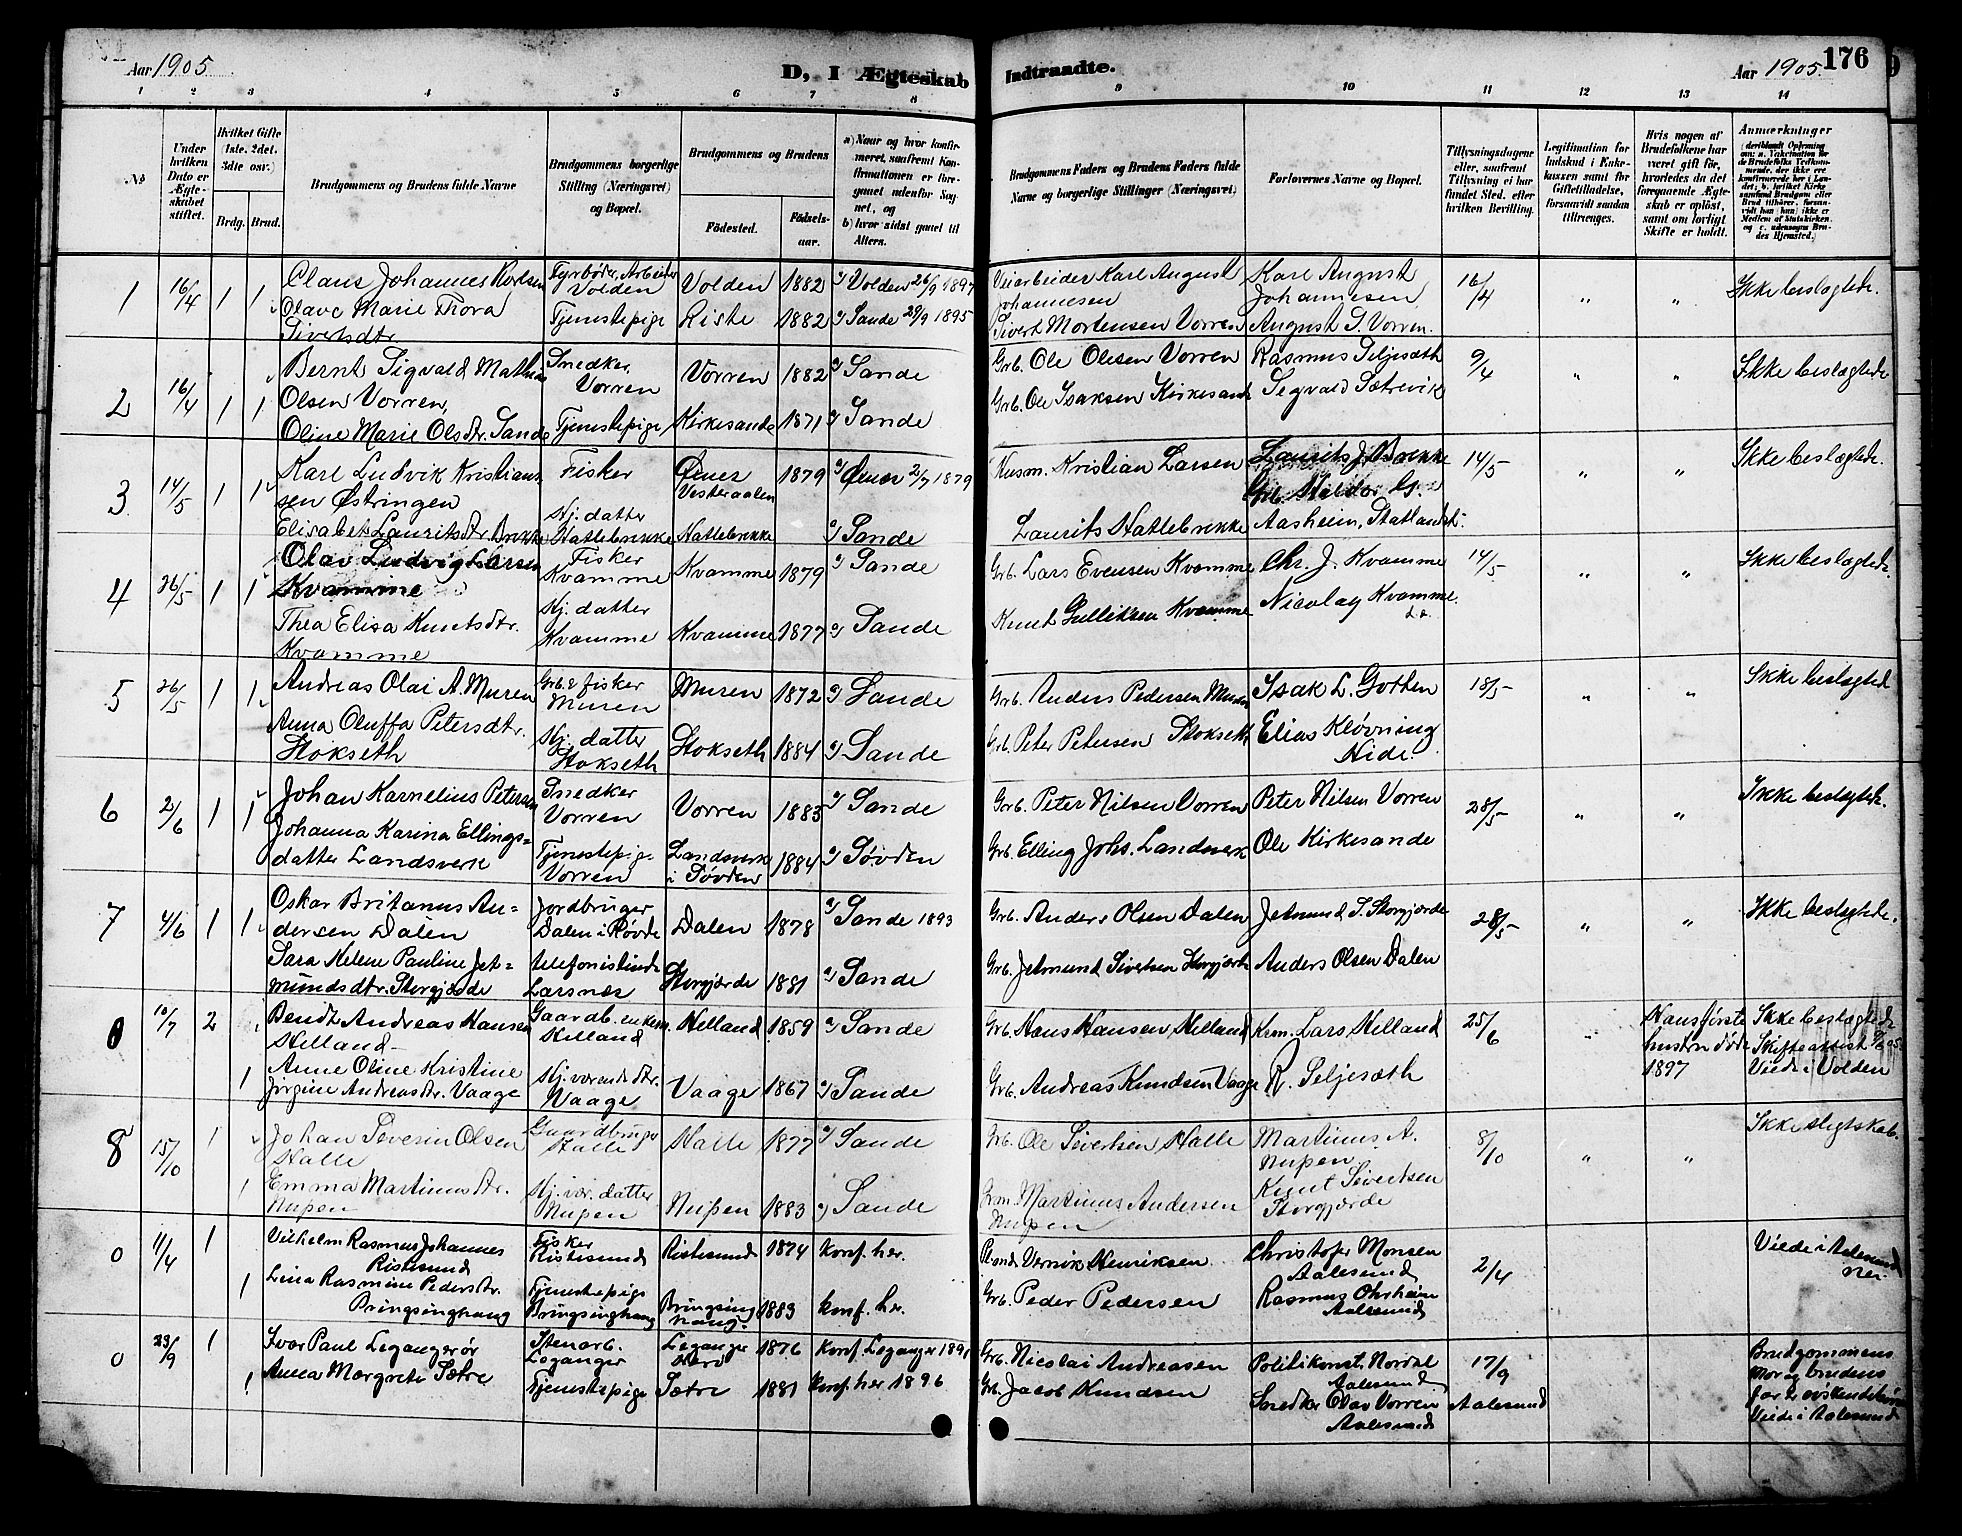 Aar 1905.
D, I Ægteskab
Indtraadte.
Aar 1905.
176
1 2 3 4 5 6 7 8 9 10 11 12 13 14
No
Under hvilken Dato er Ægteskabet stiftet.
Hvilket Gifte (1ste. 2det. 3dte osv.)
Brdg. Brud.
Brudgommens og Brudens fulde Navne
Brudgommens borgerlige Stilling (Næringsvei) og Bopæl.
Brudgommens og Brudens
Fødested.
Fødselsaar.
a) Naar og hvor konfirmeret, saafremt Konfirmationen er foregaaet udenfor Sognet, og
b) hvor sidst gaaet til Alters.
Brudgommens Faders og Brudens Faders fulde Navne og borgerlige Stillinger (Næringsvei)
Forlovernes Navne og Bopæl.
Tillysningsdagene eller, saafremt Tillysning ei har fundet Sted, efter hvilken Bevilling.
Legitimation for Indskud i Enkekassen samt for Giftetilladelse, forsaavidt saadan tiltrænges.
Hvis nogen af Brudefolkene har været gift før, hvorledes da det foregaaende Ægteskab er opløst, samt om lovligt Skifte er holdt.
Anmærkninger
1 16/4 1 1 Claus Johannes Karlsen Fyrbøder, Arbeider Volden Volden 1882 a) Volden 26/9 1897 Veiarbeider Karl August Johannesen Karl August Johannesen 16/4 " " Ikke beslægtede.
Olave Marie Thora Sivertsdtr. Tjenestepige Riste 1882 a) Sande 29/9 1895 Sivert Mortensen Vorren August S. Vorren.
2 16/4 1 1 Bernt Sigvald Mathias Olsen Vorren, Snedker, Vorren Vorren 1882 a) Sande Grb. Ole Olesen Vorren Rasmus Seljesæth 9/4 " " Ikke beslægtede
Oline Marie Olsdtr. Sande Tjenestepige Kirkesande 1871 a) Sande Grb. Ole Isaksen Kirkesande Segvald Sætrevik
3 14/5 1 1 Karl Ludvik Kristiansen Østringen Fisker Øxnes Vesteraalen 1879 a) Øxnes 2/7 1879 Husm. Kristian Larsen Laurits J. Brekke 14/5 " " Ikke beslægtede.
Elisabet Lauritsdtr. Brekke Hj. datter Hattlebrekke Hattlebrekke a) Sande Laurits Hattlebrekke Grb. Haldor G. Aasheim, Statlandet.
4 26/5 1 1 Olav Ludvig Larsen Kvamme Fisker Kvamme Kvamme 1879 a) Sande Grb. Lars Evensen Kvamme Chr. J. Kvamme 14/5 " " Ikke beslægtede.
Thea Elisa Knutsdtr. Kvamme Hj. datter Kvamme Kvamme 1877 a) Sande Knut Gulliksen Kvamme Nicolay Kvamme.
5 26/5 1 1 Andreas Olai A. Muren Grb. & fisker Muren Muren 1872 a) Sande Grb. Anders Pedersen Muren Isak L. Gothen 18/5 " " Ikke beslægted
Anna Oluffa Petersdtr. Stokseth Hj. datter Stokseth Stokseth 1884 a) Sande Grb. Peter Petersen Stokseth Elias Kløvning Hide.
6 2/6 1 1 Johan Karnelius Petersen Snedker Vorren Vorren 1883 a) Sande Grb. Peter Nilsen Vorren Peter Nilsen Vorren 28/5 " " Ikke beslægtede.
Johanna Karina Ellingsdatter Landsverk Tjenestepige Vorren Landsverk i Søvden 1884 a) Søvden Grb. Elling Johs. Landverk Ole Kirkesande
7 4/6 1 1 Oskar Britanus Andersen Dalen Jordbruger Dalen i Røvde Dalen 1878 a) Sande 1893 Grb. Anders Olsen Dalen Jetmund S. Storgjærde 28/5 " " Ikke beslægtede.
Sara Helene Pauline Jetmundsdtr. Storgjærde telefonistinde Larsnæs Storgjærde 1881 a) Sande Grb. Jetmund Sivertsen Storgjærde Anders Olsen Dalen
0 10/7 2 Bendt Andreas Hansen Helland Gaardb. enkem. Helland Helland 1859 a) Sande Grb. Hans Hansen Helland Krm. Lars Helland 25/6 " Hans første hustru døde 1897 Ikke beslægtede Skifteattest Viede i Volden
1 Anne Oline Kristine Jørgine Andreasdtr. Vaage Hj. værende dtr. Vaage Vaage 1867 a) Sande Grb. Andreas Knudsen Vaage R. Seljesæth
8 15/10 1 Johan Severin Olsen Halle Gaardbruger Halle Halle 1877 a) Sande Grb. Ole Sivertsen Halle Martinus A. Nupen 8/10 " " Ikke slegtskab.
1 Emma Martinusdtr. Nupen Hj. vær. datter Nupen Nupen 1883 a) Sande Martinus Andersen Nupen Knut Sivertsen Storgjærde
0 11/4 1 Vilhelm Rasmus Johannes Ristesund Fisker Ristesund Ristesund 1874 konf. her. Vernik Henriksen Christofer Monsen Aalesund 2/4 Viede i Aalesund nei
1 Lina Rasmine Pedersdtr. Bringsinghaug Tjenestepige Bringsinghaug Bringsinghaug. 1883 konf. her. Grb. Peder Pedersen Rasmus Ohrheim Aalesund
0 23/9 1 Ivar Paul Legangerør Stenarb. Leganger Leganger Herø 1876 konf. Leganger 1891 Grb. Nicolai Andreasen Politikonst. Nordal Aalesund. 17/9 Brudgommens mor og brudens far er øskendebørn Viede i Aalesund
1 Anna Margrete Sætre Tjenestepige Sætre 1881 konf. her 1896 Grb. Jacob Knudsen Snedker Olav Vorren Aalesund Aalesund